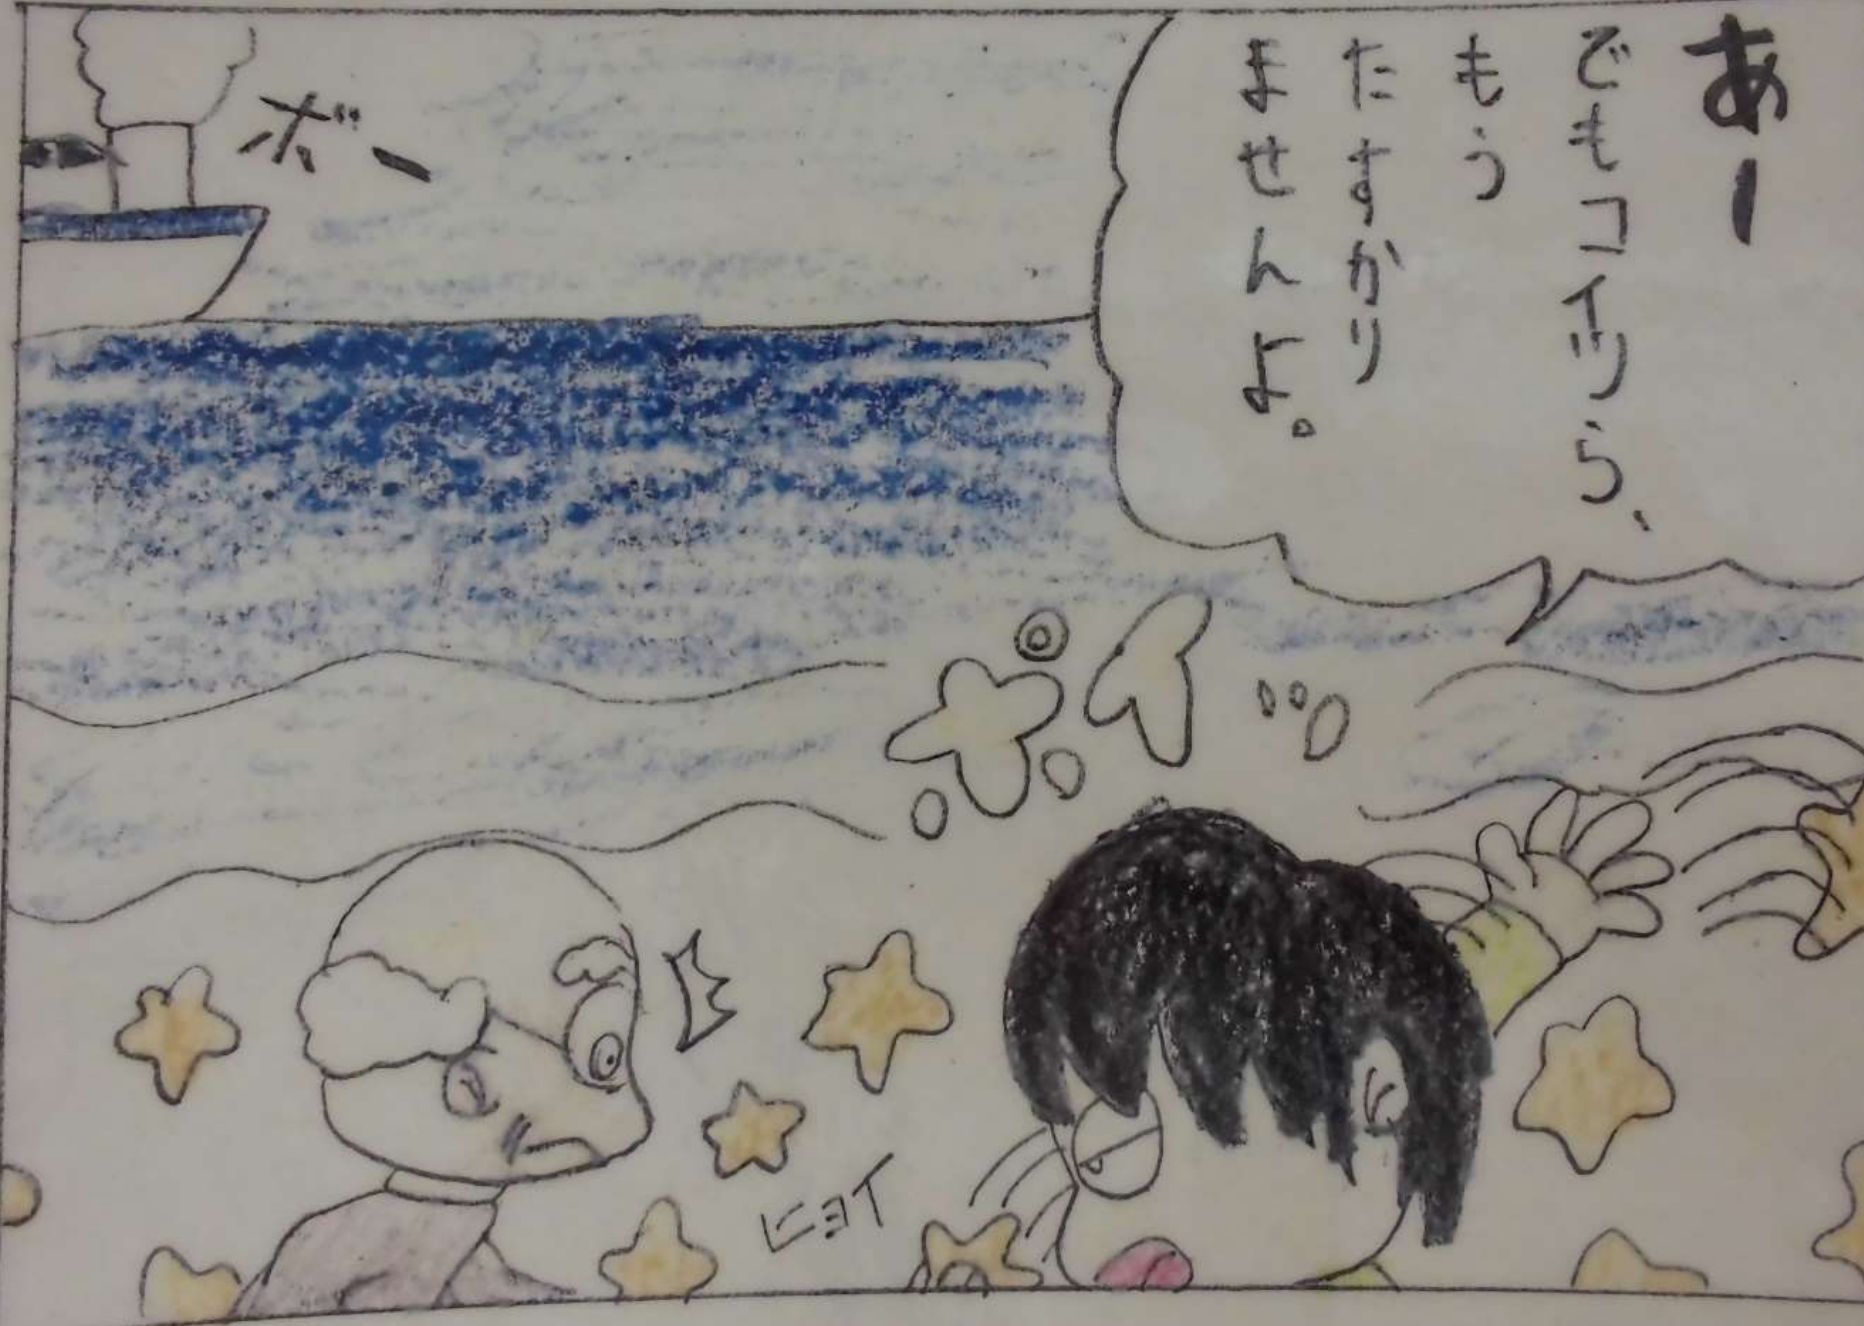 あー
でもコイツら、
もう
たすかり
ませんよ。
ボー
ポイッ
ヒョイ